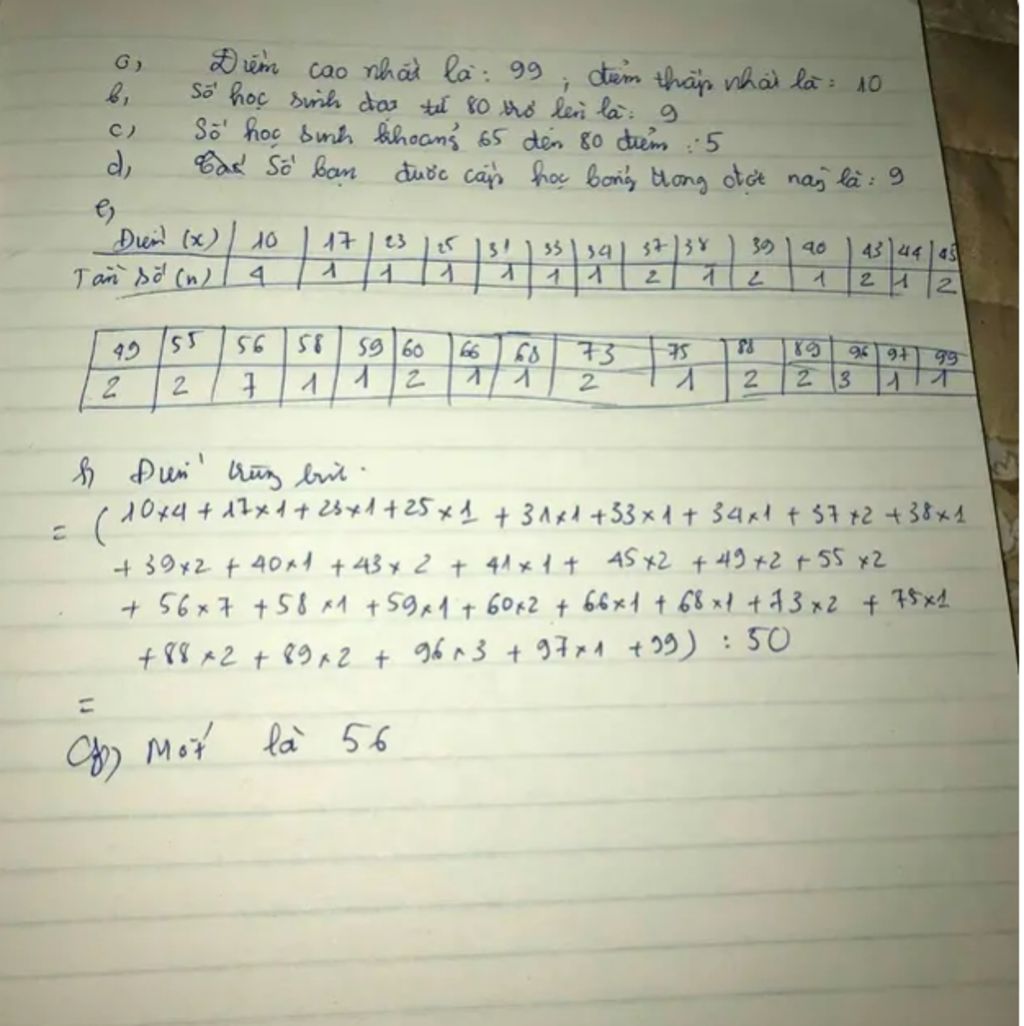 a, Điểm cao nhất là: 99 ; điểm thấp nhất là: 10
b, Số học sinh đạt từ 80 trở lên là: 9
c, Số học sinh khoảng 65 đến 80 điểm : 5
d, Số bạn được cấp học bổng trong đợt này là: 9
e,
Điểm (x) 10 17 23 25 31 33 34 37 38 39 40 43 44 45
Tần số (n) 4 1 1 1 1 1 1 2 1 2 1 2 1 2
49 55 56 58 59 60 66 68 73 75 88 89 96 97 99
2 2 7 1 1 2 1 1 2 1 2 2 3 1 1
f, Điểm trung bình.
= ( 10×4 + 17×1 + 23×1 + 25×1 + 31×1 + 33×1 + 34×1 + 37×2 + 38×1
+ 39×2 + 40×1 + 43×2 + 41×1 + 45×2 + 49×2 + 55×2
+ 56×7 + 58×1 + 59×1 + 60×2 + 66×1 + 68×1 + 73×2 + 75×1
+ 88×2 + 89×2 + 96×3 + 97×1 + 99) : 50
=
g, Mốt là 56